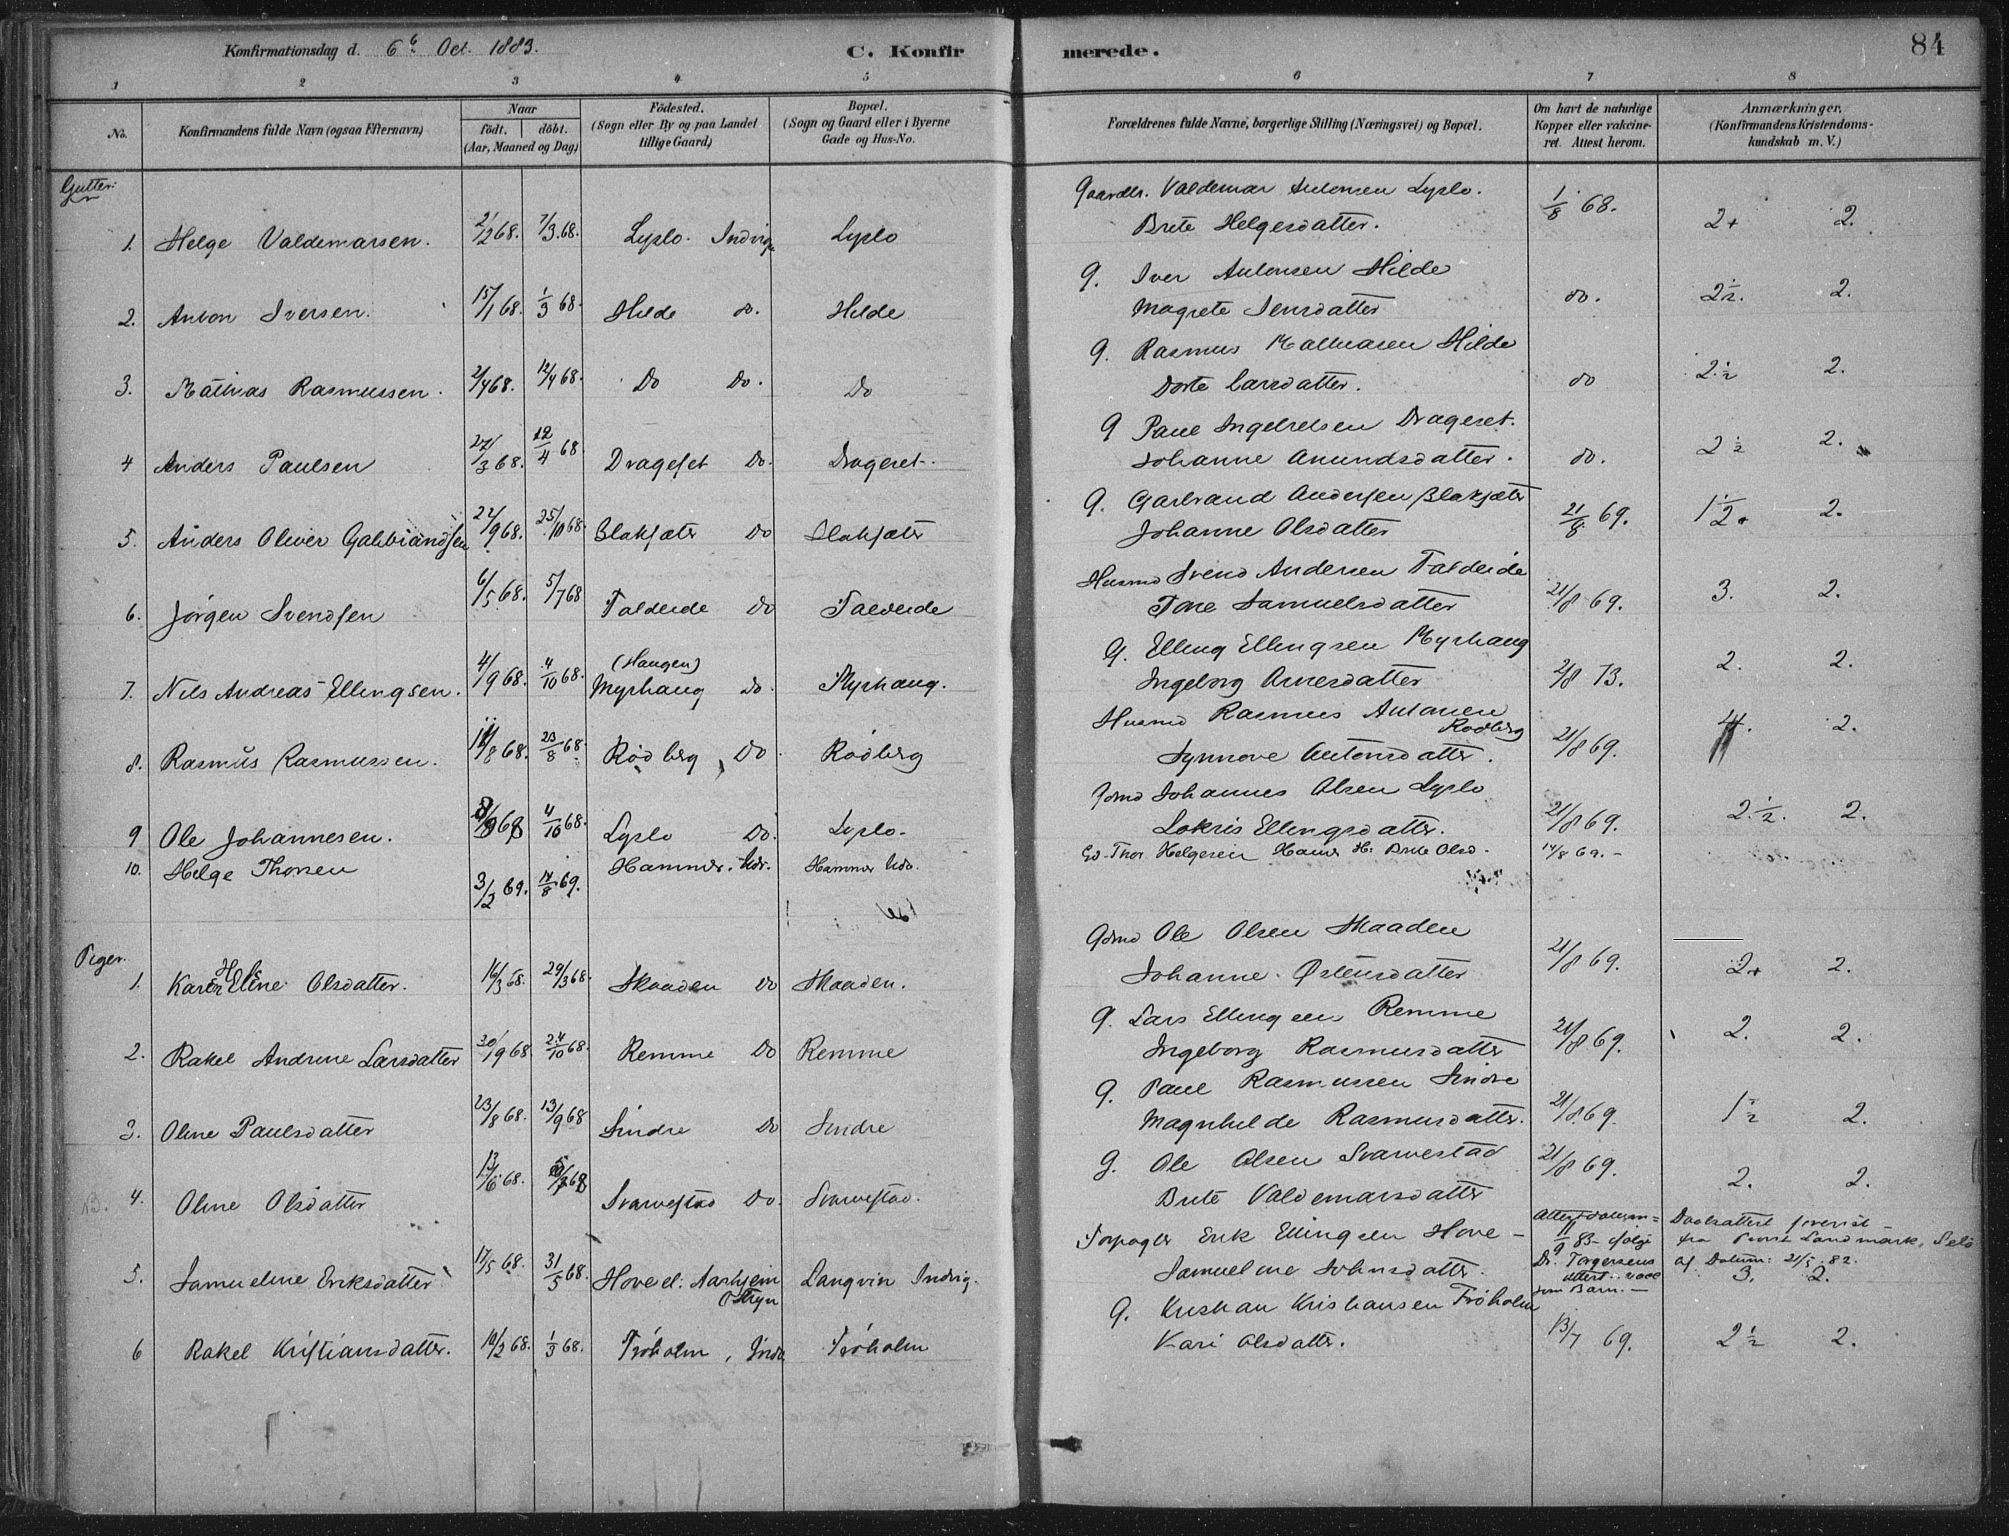 Konfirmationsdag d. 6 Oct. 1883. C. Konfirmerede. 84
1 2 3 4 5 6 7 8
No. Konfirmandens fulde Navn (ogsaa Efternavn) Naar födt. döbt. (Aar, Maaned og Dag) Födested. (Sogn eller By og paa Landet tillige Gaard) Bopæl. (Sogn og Gaard eller i Byerne Gade og Hus-No. Forældrenes fulde Navne, borgerlige Stilling (Næringsvei) og Bopæl. Om havt de naturlige Kopper eller vakcineret. Attest herom. Anmærkninger. (Konfirmandens Kristendomskundskab m.V.)
Gutter:
Gaardbr. Valdemar Antonsen Lyslo.
1. Helge Valdemarsen. 2/2 68. 1/3 68. Lyslo. Indvig Lyslo Brite Helgesdatter. 1/8 68. 2+ 2.
G. Iver Antonsen Hilde
2. Anton Iversen. 15/1 68. 1/3 68. Hilde do. Hilde Magrete Jensdatter do. 2 1/2. 2.
G. Rasmus Mathiasen Hilde
3. Mathias Rasmussen. 2/4 68. 12/4 68. Do Do. Do Dorte Larsdatter. do 2 1/2 2.
G Paul Ingebretsen Drageset.
4 Anders Paulsen 3 68. 12/4 68 Drageset Do. Drageset. Johanne Amundsdatter. do. 2 1/2 2.
G. Garbrand Andersen Blaksæter
5. Anders Oliver Gabbrandsen 22/9 68. 25/10 68. Blaksæter Do Blaksæter Johanne Olsdatter 21/8 69. 1 1/2. 2.
Husmd Svend Andersen Taldeide
6. Jörgen Svendsen 6/5 68. 5/7 68 Faldeide Do Faldeide Samuelsdatter 21/8 69. 3. 2.
G. Elling Ellingsen Myrhaug
(Haugen)
7. Nils Andreas Ellingsen. 4/9 68. 4/10 68. Myrhaug Do. Myrhaug. Ingeborg Arnesdatter 2/8 73. 2. 2.
Husmd Rasmus Antonsen Rødberg
8. Rasmus Rasmussen. 11/8 68. 23/8 68. Rødberg Do Rødberg Synnøve Antonsdatter. 21/8 69. 4. 2.
Gdmd Johannes Olsen Lyslo
9 Ole Johannesen. 68 4/10 68. Lyslo Do. Lyslo. Lokris Ellingsdatter. 21/8 69. 2 1/2. 2.
10. Helge Thorsen 3/2 69. 14/8 69. Hammer. Hammer Thor Helgesen H: Brite Olsd. 14/8 69.
Piger.
Gdmd Ole Olsen Skaaden
1. Karen Helene Olsdatter. 16/3 68. 29/3 68. Skaaden Do Skaaden. Johanne Østensdatter 21/8 69. 2+ 2.
G. Lars Ellingsen Remme
2. Rakel Andrine Larsdatter 30/9 68 24/10 68. Remme Do Remme Ingeborg Rasmusdatter 21/8 69. 2. 2.
G. Paul Rasmussen Sindre
3. Oline Paulsdatter 23/8 68. 13/9 68 Sindre Do Sindre Magnhilde Rasmusdatter. 21/8 69. 1 1/2 2.
G. Ole Olsen Svarvestad
4. Oline Olsdatter 13/6 68. 68 Svarvestad Do. Svarvestad. Brite Valdemarsdatter 21/8 69. 2. 2.
Forpagter Erik Ellingsen Hove - 11/9 83 ifølge Dr. Torgersens attest som Barn. - fra Provst Landmark, Selø af Datum: 21/5 82.
5. Samueline Eriksdatter 17/5 68. 31/5 68. Hove el. Aarhjem Stryn Langvin Indvig. Samueline Johnsdatter. 3. 2.
G. Kristian Kristiansen Frøholm
6 Rakel Kristiansdatter. 10/2 68. 1/3 68. Frøholm, Indv Frøholm Kari Olsdatter. 13/7 69. 2 1/2 2.